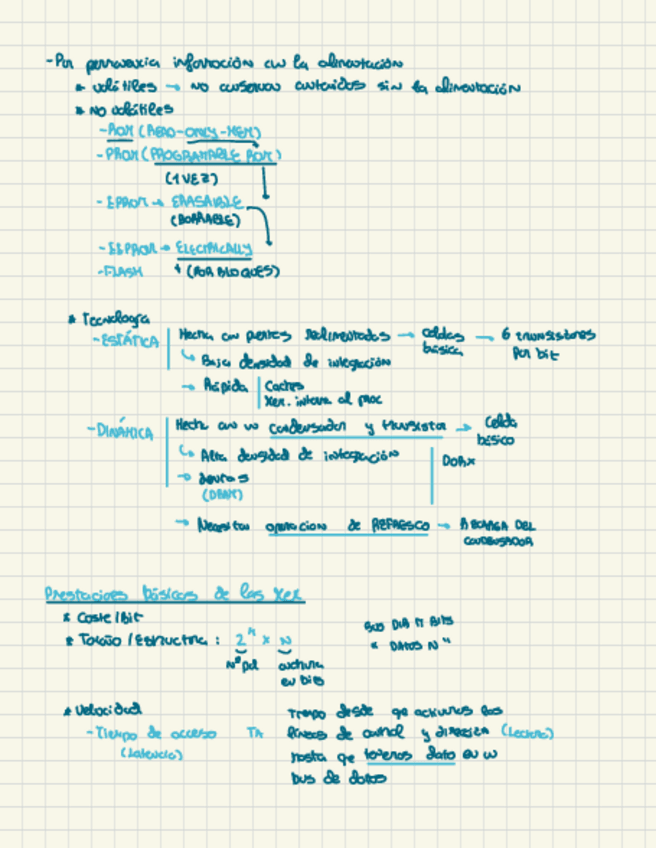 - Por permanencia información con la alimentación
* volátiles → no conservan contenidos sin la alimentación
* no volátiles
- ROM (READ-ONLY-MEM)
- PROM (PROGRAMABLE ROM)
(1 VEZ)
- EPROM → ERASABLE
(BORRABLE)
- EEPROM → ELECTRICALLY
- FLASH + (POR BLOQUES)
* Tecnología
- ESTÁTICA Hecha con puertas realimentadas → celdas básica → 6 transistores por bit
Baja densidad de integración
→ Rápida Caches
Mem. interna al proc
- DINÁMICA Hecha con un condensador y transistor → Celda básico
Alta densidad de integración
→ lentas
(DRAM)
→ Necesitan operacion de REFRESCO → RECARGA DEL CONDENSADOR
Prestaciones básicas de las Mem
* Coste/Bit
* Tamaño / Estructura : 2ⁿ x N
nº pal anchura en bits
BUS DIR n BITS
" DATOS N "
* Velocidad
- Tiempo de acceso TA
(Latencia)
Tiempo desde qe activamos las
líneas de control y dirección (Lectura)
hasta qe tenemos dato en un
bus de datos